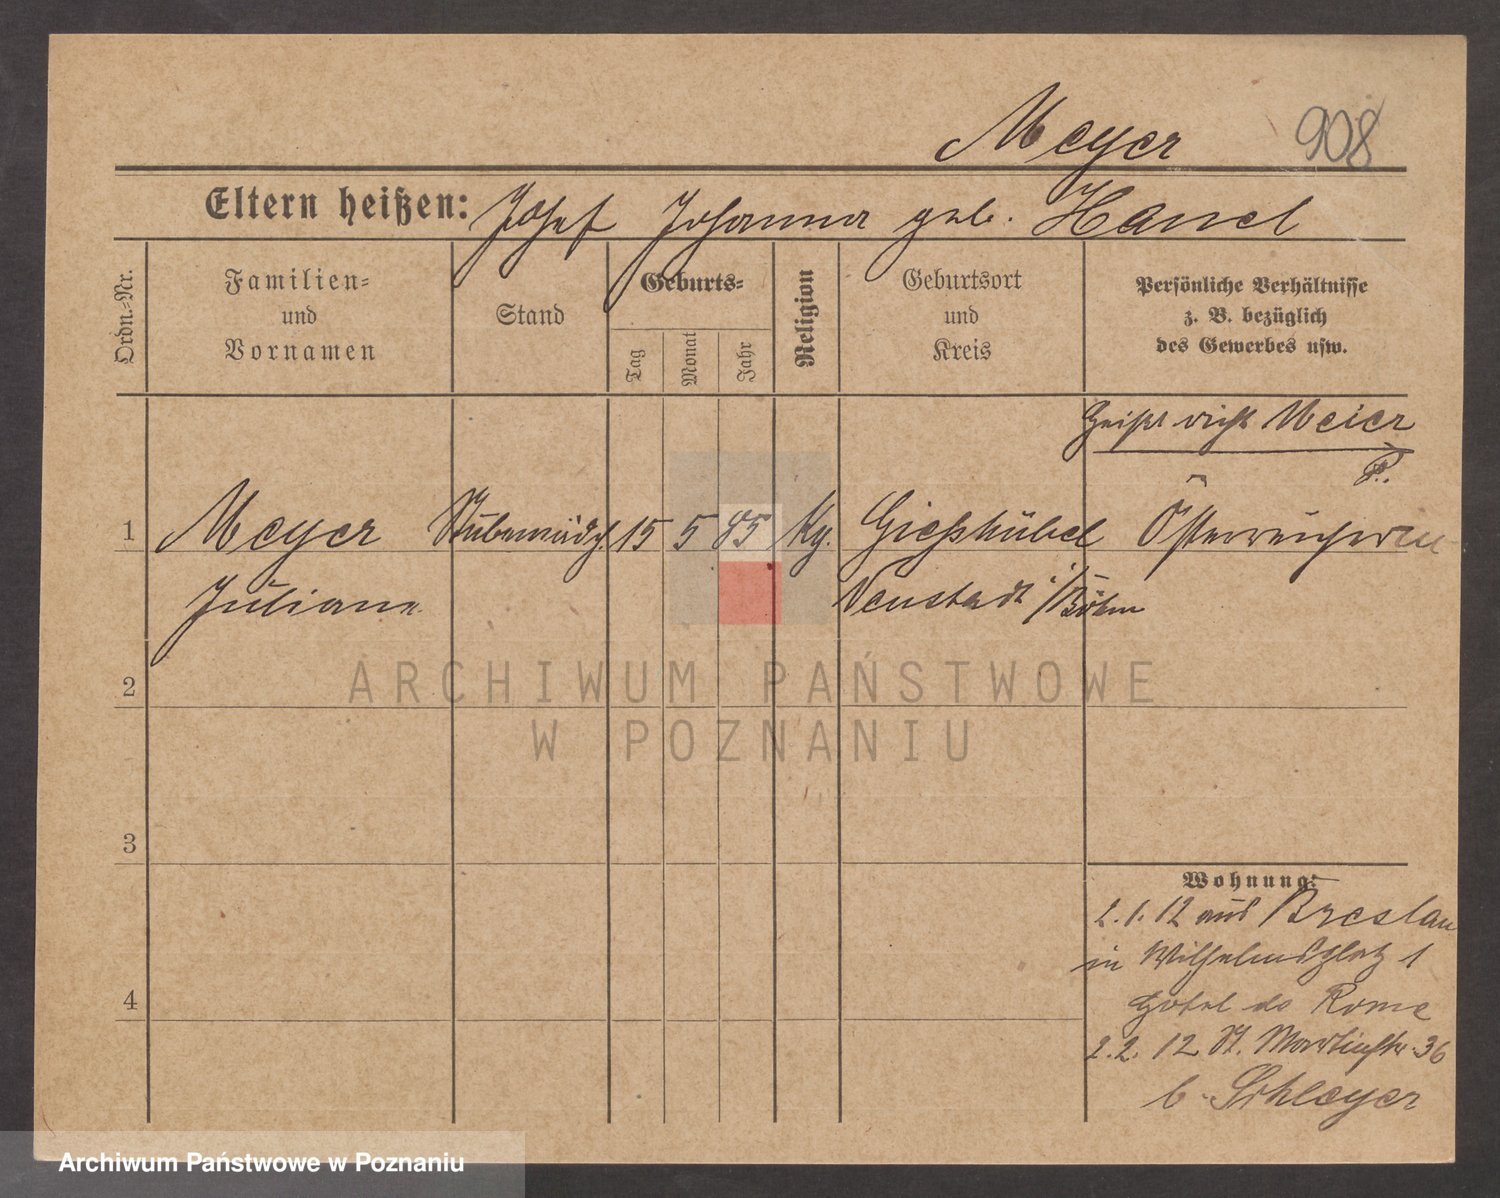 Meyer 908
Eltern heißen: Josef Johanna geb. Hanel
Ordn.=Nr.
Familien=
und
Vornamen
Stand
Geburts=
Tag
Monat
Jahr
Religion
Geburtsort
und
Kreis
Persönliche Verhältnisse
z. B. bezüglich
des Gewerbes usw.
heißt nicht Meier
1 Meyer Stubenmädch. 15 5 85 Kg. Gießhübel Österreicherin
Juliana Neustadt i/Böhm
ARCHIWUM PAŃSTWOWE
2
W POZNANIU
3
Wohnung:
2.1.12 aus Breslau
in Wilhelmsplatz 1
Hotel de Rome
4
2.2.12 St. Martinstr. 36
b. Schleyer
Archiwum Państwowe w Poznaniu